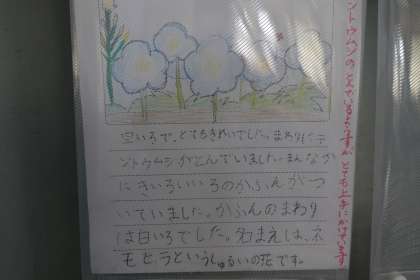 空いろで、とてもきれいでした。まわりにテ
ントウムシがとんでいました。まんなか
にきいろいいろのかふんがつ
いていました。かふんのまわり
は白いろでした。名まえは、ネ
モヒィラというしゅるいの花です。
ントウムシのとんでいるようすが、とても上手にかけています